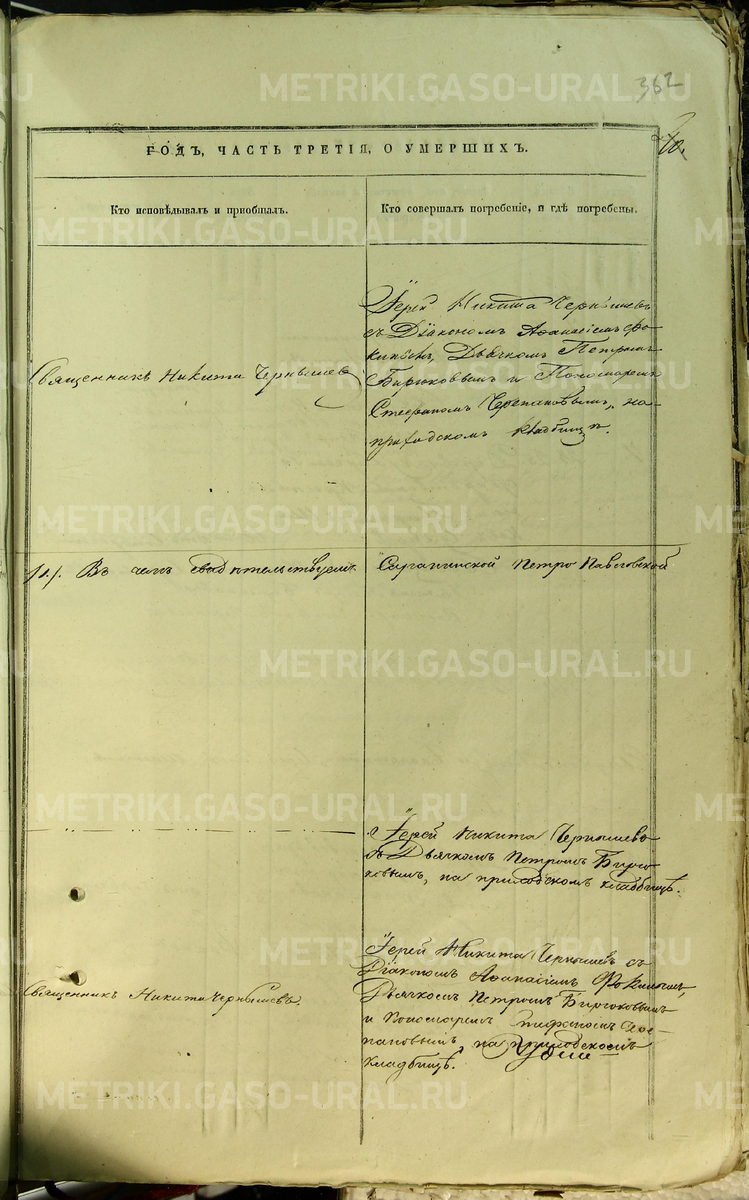 362
ГОДЪ, ЧАСТЬ ТРЕТІЯ, О УМЕРШИХЪ.
Кто исповѣдывалъ и приобщалъ.
Кто совершалъ погребеніе, и гдѣ погребены.
Священникъ Никита Чернышевъ
Іерей Никита Чернышевъ
съ Діакономъ Афанасіемъ Фо-
кинымъ, Дьячкомъ Петромъ
Бирюковымъ и Пономаремъ
Стефаномъ Черепановымъ, на
приходскомъ кладбищѣ.
Въ чемъ свидѣтельствуемъ
Сарганинской Петро Павловской
Іерей Никита Чернышевъ
съ Дьячкомъ Петромъ Бирю-
ковымъ, на приходскомъ кладбищѣ.
Священникъ Никита Чернышевъ
Іерей Никита Чернышевъ съ
Діакономъ Афанасіемъ Фокинымъ,
Дьячкомъ Петромъ Бирюковымъ
и Пономаремъ Стефаномъ Чере-
пановымъ, на приходскомъ
кладбищѣ.
METRIKI.GASO-URAL.RU